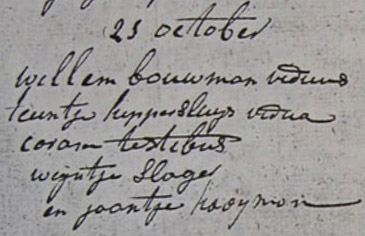 25 october
willem bouwman viduus
teuntje kuppersluys vidua
coram testibus
wijntje slager
en jaantje kooyman